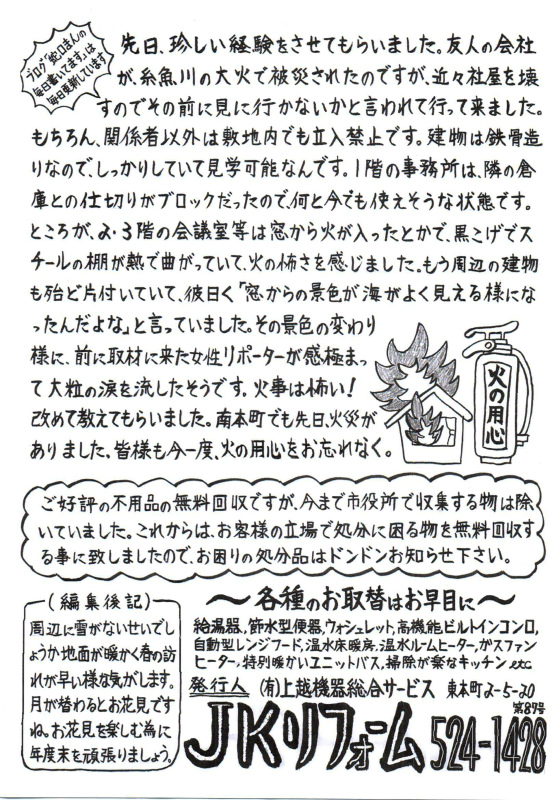 ブログ「蛇口まんの
毎日書いてます」は
毎日更新しています
先日、珍しい経験をさせてもらいました。友人の会社
が、糸魚川の大火で被災されたのですが、近々社屋を壊
すのでその前に見に行かないかと言われて行って来ました。
もちろん、関係者以外は敷地内でも立入禁止です。建物は鉄骨造
りなので、しっかりしていて見学可能なんです。1階の事務所は、隣の倉
庫との仕切りがブロックだったので、何と今でも使えそうな状態です。
ところが、2・3階の会議室等は窓から火が入ったとかで、黒こげでス
チールの棚が熱で曲がっていて、火の怖さを感じました。もう周辺の建物
も殆ど片付いていて、彼曰く「窓からの景色が海がよく見える様にな
ったんだよな」と言っていました。その景色の変わり
様に、前に取材に来た女性リポーターが感極まっ
て大粒の涙を流したそうです。火事は怖い!
改めて教えてもらいました。南本町でも先日、火災が
ありました、皆様も今一度、火の用心をお忘れなく。
火の用心
ご好評の不用品の無料回収ですが、今まで市役所で収集する物は除
いていました。これからは、お客様の立場で処分に困る物を無料回収す
る事に致しましたので、お困りの処分品はドンドンお知らせ下さい。
(編集後記)
周辺に雪がないせいでし
ょうか地面が暖かく春の訪
れが早い様な気がします。
月が替わるとお花見です
ね。お花見を楽しむ為に
年度末を頑張りましょう。
～各種のお取替はお早目に～
給湯器,節水型便器,ウォシュレット,高機能ビルトインコンロ,
自動型レンジフード,温水床暖房,温水ルームヒーター,ガスファン
ヒーター,特別暖かいユニットバス,掃除が楽なキッチン etc
発行人 (有)上越機器総合サービス 東本町2-5-20
第87号
JKリフォーム 524-1428